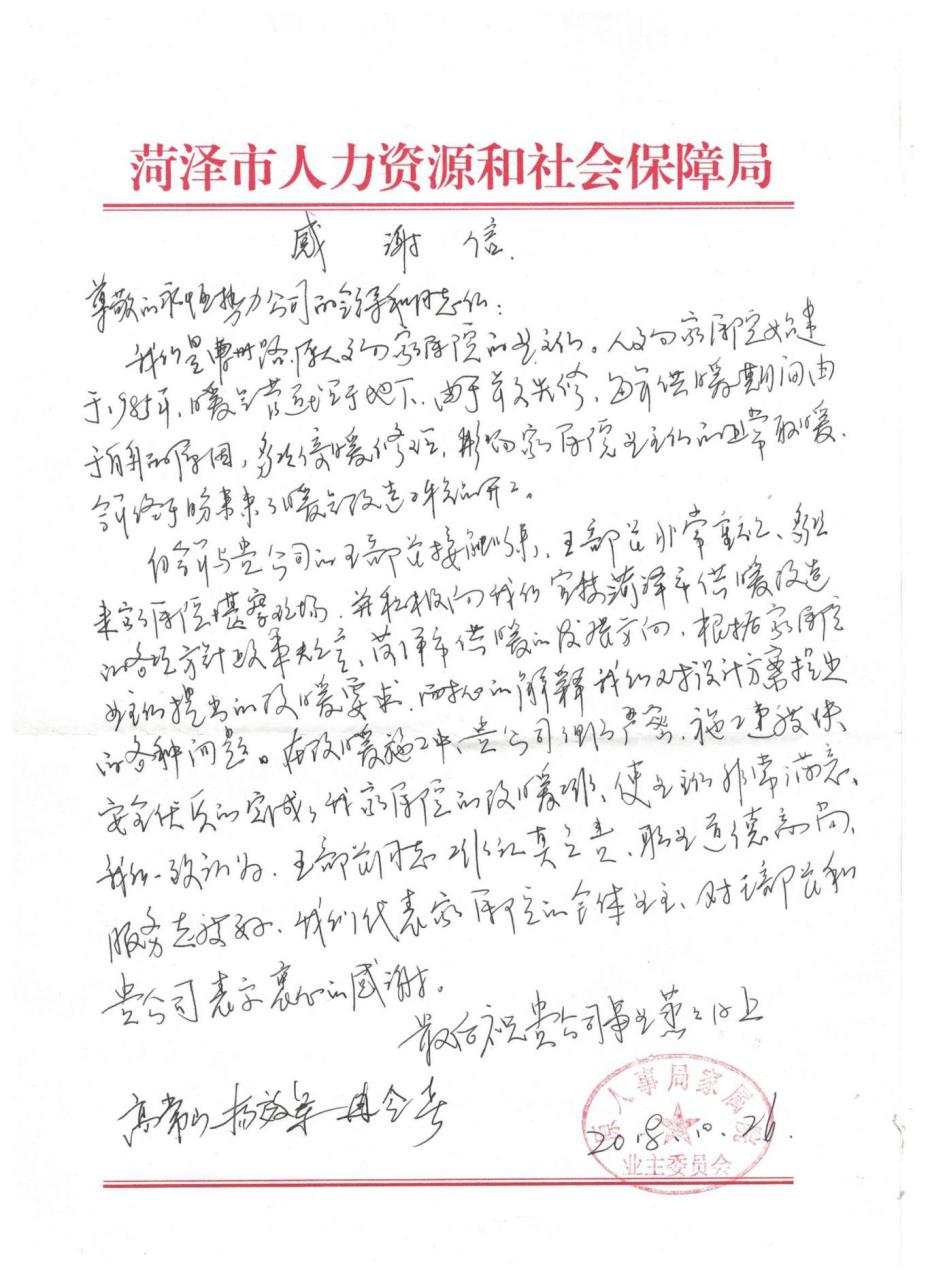 菏泽市人力资源和社会保障局
感谢信
尊敬的永恒热力公司的领导和同志们：
我们是曹州路原人事局家属院的业主们。人事局家属院始建
于1985年，暖气管道埋于地下，由于年久失修，每年供暖期间由
于自身的原因，多次停暖修理，影响家属院业主们的正常取暖.
今年终于盼来了暖气改造工程的开工。
自今年与贵公司的王部长接触以来，王部长非常重视、多次
来家属院堪察现场，并积极向我们宣传菏泽市供暖改造
的各项方针政策，菏泽市供暖的发展方向，根据家属院
业主们提出的改暖要求，耐心的解释我们对设计方案提出
的各种问题。在改暖施工中，贵公司严密，施工速度快
安全优质的完成了我家属院的改暖工作，使业主们非常满意。
我们一致认为，王部长同志工作认真负责、职业道德高尚，
服务态度好，我们代表家属院的全体业主，对王部长和
贵公司表示衷心的感谢。
最后祝贵公司事业蒸蒸日上
高常山 杨效军 冉会春
原人事局家属院
2018.10.26.
业主委员会